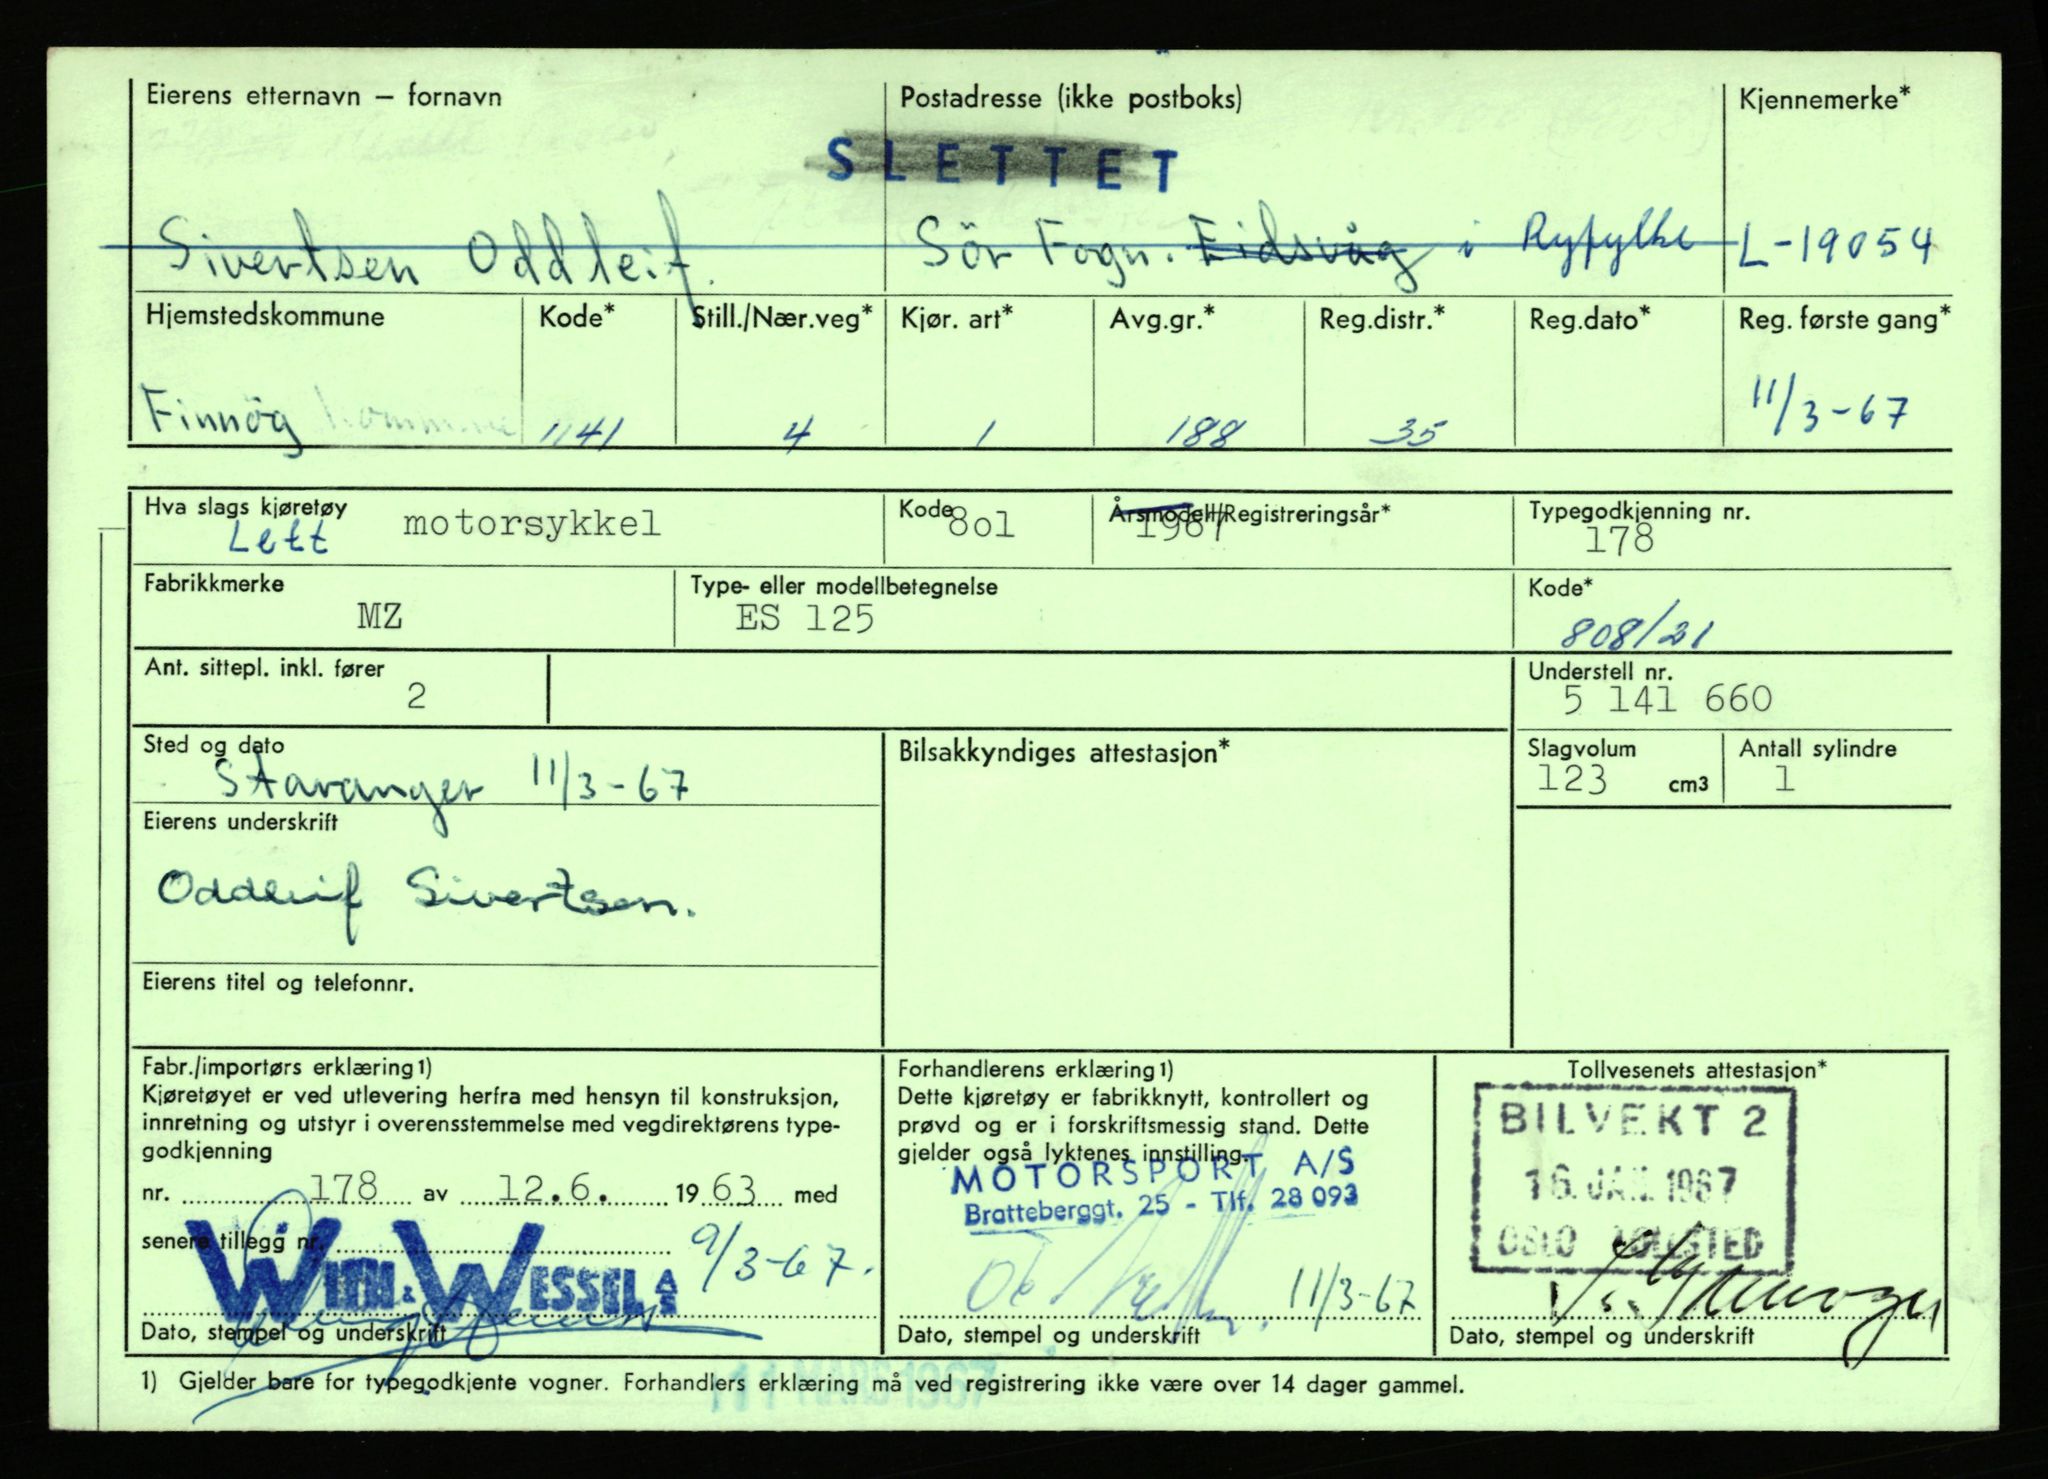 Eierens etternavn – fornavn
Postadresse (ikke postboks)
Kjennemerke*
SLETTET
Sivertsen Oddleif.
Sör Fogn. Eidsvåg i Ryfylke
L-19054
Hjemstedskommune
Kode*
Still./Nær.veg*
Kjør. art*
Avg.gr.*
Reg.distr.*
Reg.dato*
Reg. første gang*
Finnög kommune
1141
4
1
188
35
11/3-67
Hva slags kjøretøy
Lett motorsykkel
Kode
8o1
Årsmodell/Registreringsår*
1967
Typegodkjenning nr.
178
Fabrikkmerke
MZ
Type- eller modellbetegnelse
ES 125
Kode*
808/21
Ant. sittepl. inkl. fører
2
Understell nr.
5 141 660
Sted og dato
Stavanger 11/3-67
Bilsakkyndiges attestasjon*
Slagvolum
123 cm3
Antall sylindre
1
Eierens underskrift
Oddleif Sivertsen.
Eierens titel og telefonnr.
Fabr./importørs erklæring 1)
Kjøretøyet er ved utlevering herfra med hensyn til konstruksjon,
innretning og utstyr i overensstemmelse med vegdirektørens type-
godkjenning
nr. 178 av 12.6. 1963 med
senere tillegg nr.
9/3-67.
WIEH & WESSEL A/S
Dato, stempel og underskrift
Forhandlerens erklæring 1)
Dette kjøretøy er fabrikknytt, kontrollert og
prøvd og er i forskriftsmessig stand. Dette
gjelder også lyktenes innstilling.
MOTORSPORT A/S
Bratteberggt. 25 - Tlf. 28 093
11/3-67
Dato, stempel og underskrift
Tollvesenets attestasjon*
BILVEKT 2
16. JAN. 1967
OSLO TOLLSTED
Dato, stempel og underskrift
1) Gjelder bare for typegodkjente vogner. Forhandlers erklæring må ved registrering ikke være over 14 dager gammel.
11 MAR 1967